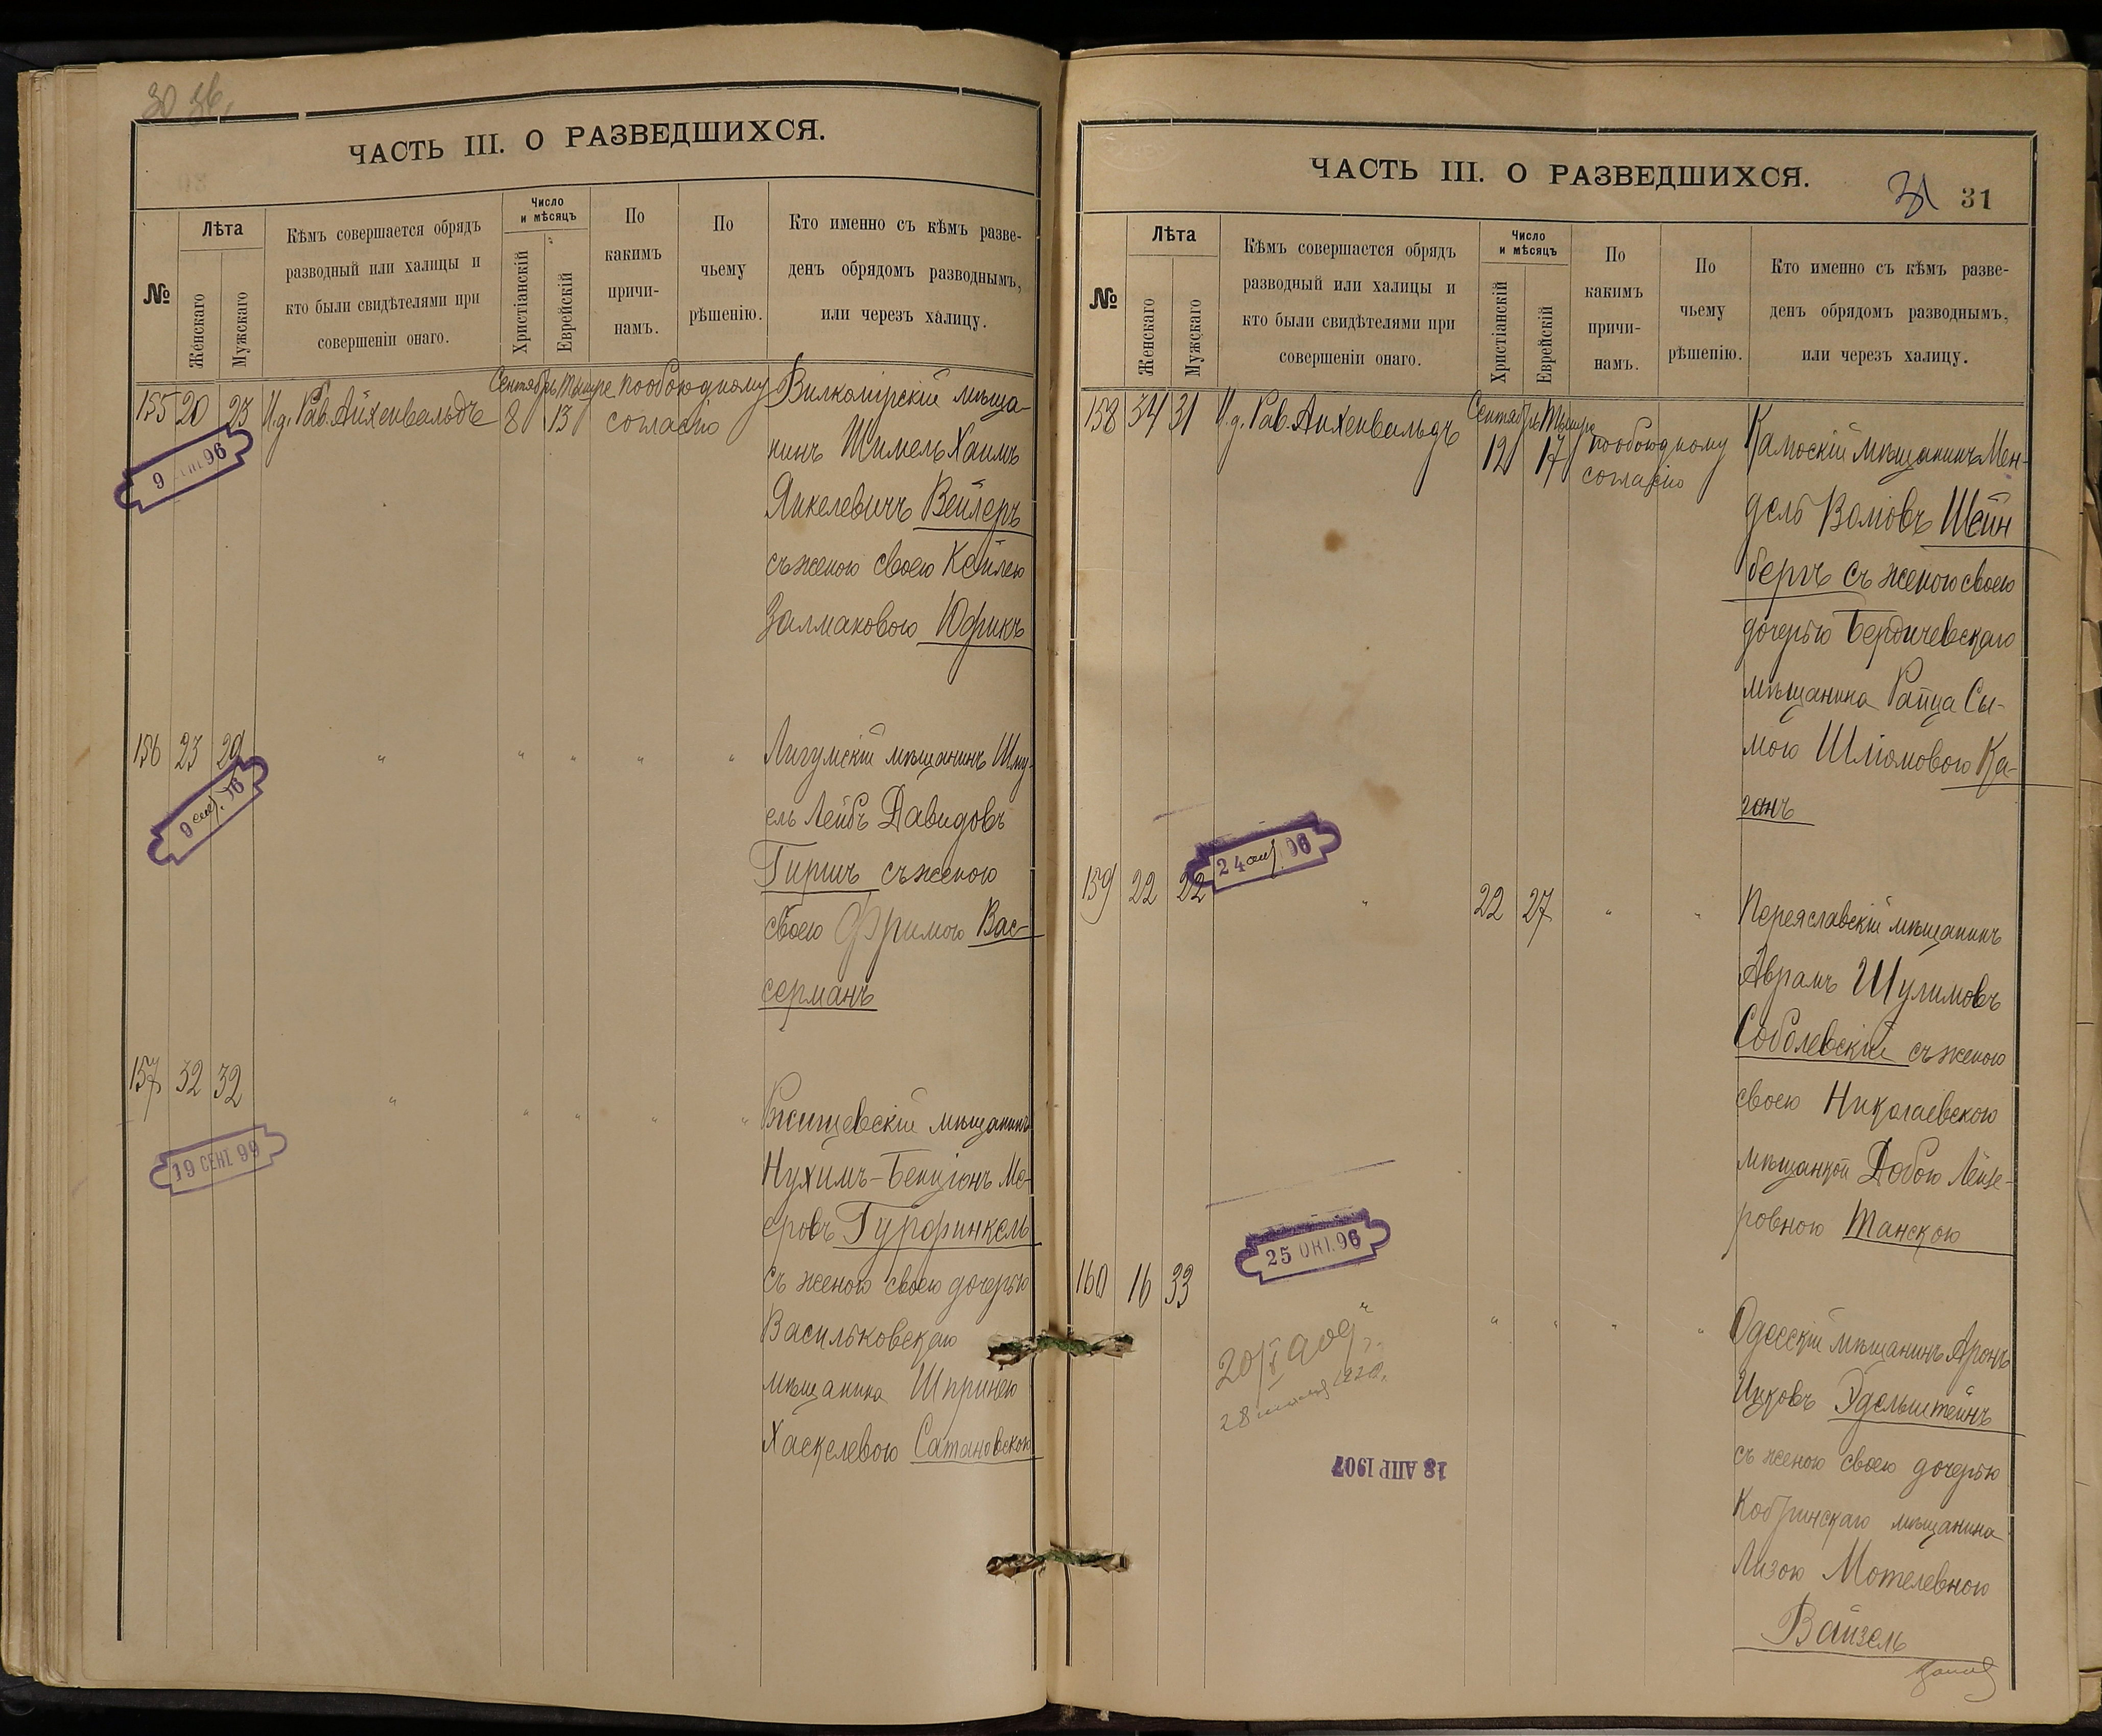 30 36.
ЧАСТЬ III. О РАЗВЕДШИХСЯ.
№
Лѣта
Женскаго
Мужскаго
Кѣмъ совершается обрядъ
разводный или халицы и
кто были свидѣтелями при
совершеніи онаго.
Число
и мѣсяцъ
Христіанскій
Еврейскій
По
какимъ
причи-
намъ.
По
чьему
рѣшенію.
Кто именно съ кѣмъ разве-
денъ обрядомъ разводнымъ,
или черезъ халицу.
155 20 23 И.д. Рав. Айхенвальдъ
Сентябрь 8
Тишре 13
пообоюдному
согласію
Вилкомірскій мѣща-
нинъ Шимель Хаимъ
Янкелевичъ Вейлеръ
съ женою своею Кейлею
Залмановою Юфикъ
9 96
156 23 29 " " " " "
Лигумскій мѣщанинъ Шму-
ель Лейбъ Давидовъ
Гиршъ съ женою
своею Фримою Вас-
серманъ
9 96
157 32 32 " " " " "
Ржищевскій мѣщанинъ
Нухимъ-Бенціонъ Мо-
еровъ Гурфинкель
съ женою своею дочерью
Васильковскаго
мѣщанина Шпринею
Хаскелевою Сатановскою
19 СЕНТ 99
ЧАСТЬ III. О РАЗВЕДШИХСЯ.
31 31
№
Лѣта
Женскаго
Мужскаго
Кѣмъ совершается обрядъ
разводный или халицы и
кто были свидѣтелями при
совершеніи онаго.
Число
и мѣсяцъ
Христіанскій
Еврейскій
По
какимъ
причи-
намъ.
По
чьему
рѣшенію.
Кто именно съ кѣмъ разве-
денъ обрядомъ разводнымъ,
или черезъ халицу.
158 34 31 И.д. Рав. Айхенвальдъ
Сентябрь 12
Тишре 17
пообоюдному
согласію
мѣщанинъ Мен-
дель Шейн
бергъ съ женою своею
дочерью Бердичевскаго
мѣщанина Сы-
мою Шліомовою Ка-
ганъ
24 96
159 22 22 " 22 27 " "
Переяславскій мѣщанинъ
Аврамъ Шулимовъ
Соболевскій съ женою
своею Николаевскою
мѣщанкой Добою Лейзе-
ровною Танскою
25 ОКТ. 96
160 16 33 " " " " "
Одесскій мѣщанинъ Аронъ
Ицковъ Эдельштейнъ
съ женою своею дочерью
Кобринскаго мѣщанина
Лизою Мотелевною
Вайзель
18 АПР 1907